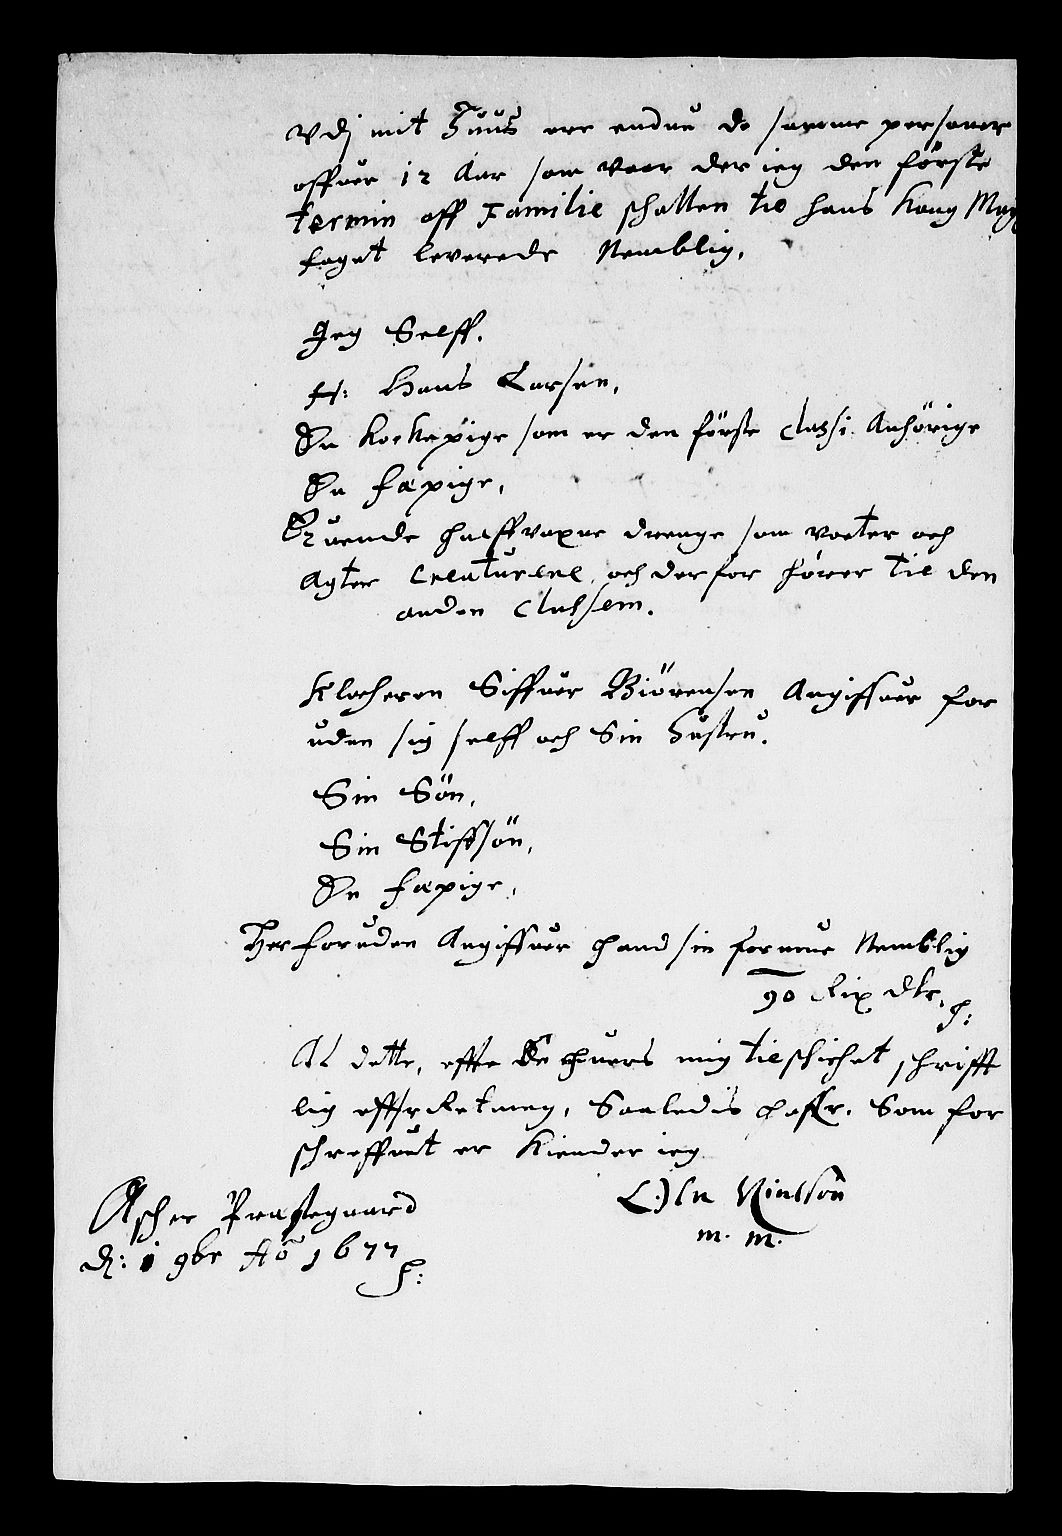 Vdj mit Huus ere endnu de samme personer
offuer 12 Aar som vaar der ieg den förste
termin aff Familie schatten til hans Kong Mays
foget leverede Nemblig,
Jeg Selff.
H: Hans Larsen,
En Kockepige som er den förste Classi Anhörige
En Fæpige,
Tuende halffvoxne drenge som vocter och
Agter Creaturene, och derfor hörer til den
anden Classem.
Klocheren Siffuer Biörensen Angiffuer for
uden sig selff och Sin Hustru.
Sin Sön,
Sin Stiffsön,
En Fæpige,
Herforuden Angiffuer hand sin formue Nemblig
90 Rix dlr.
At dette, effter mig tilschichet schrifft
lig Saaledis som for
schreffuet er Kiender ieg
Ascher Præstegaard
d: 1 9br Ao 1677
Nielssön
m. m.